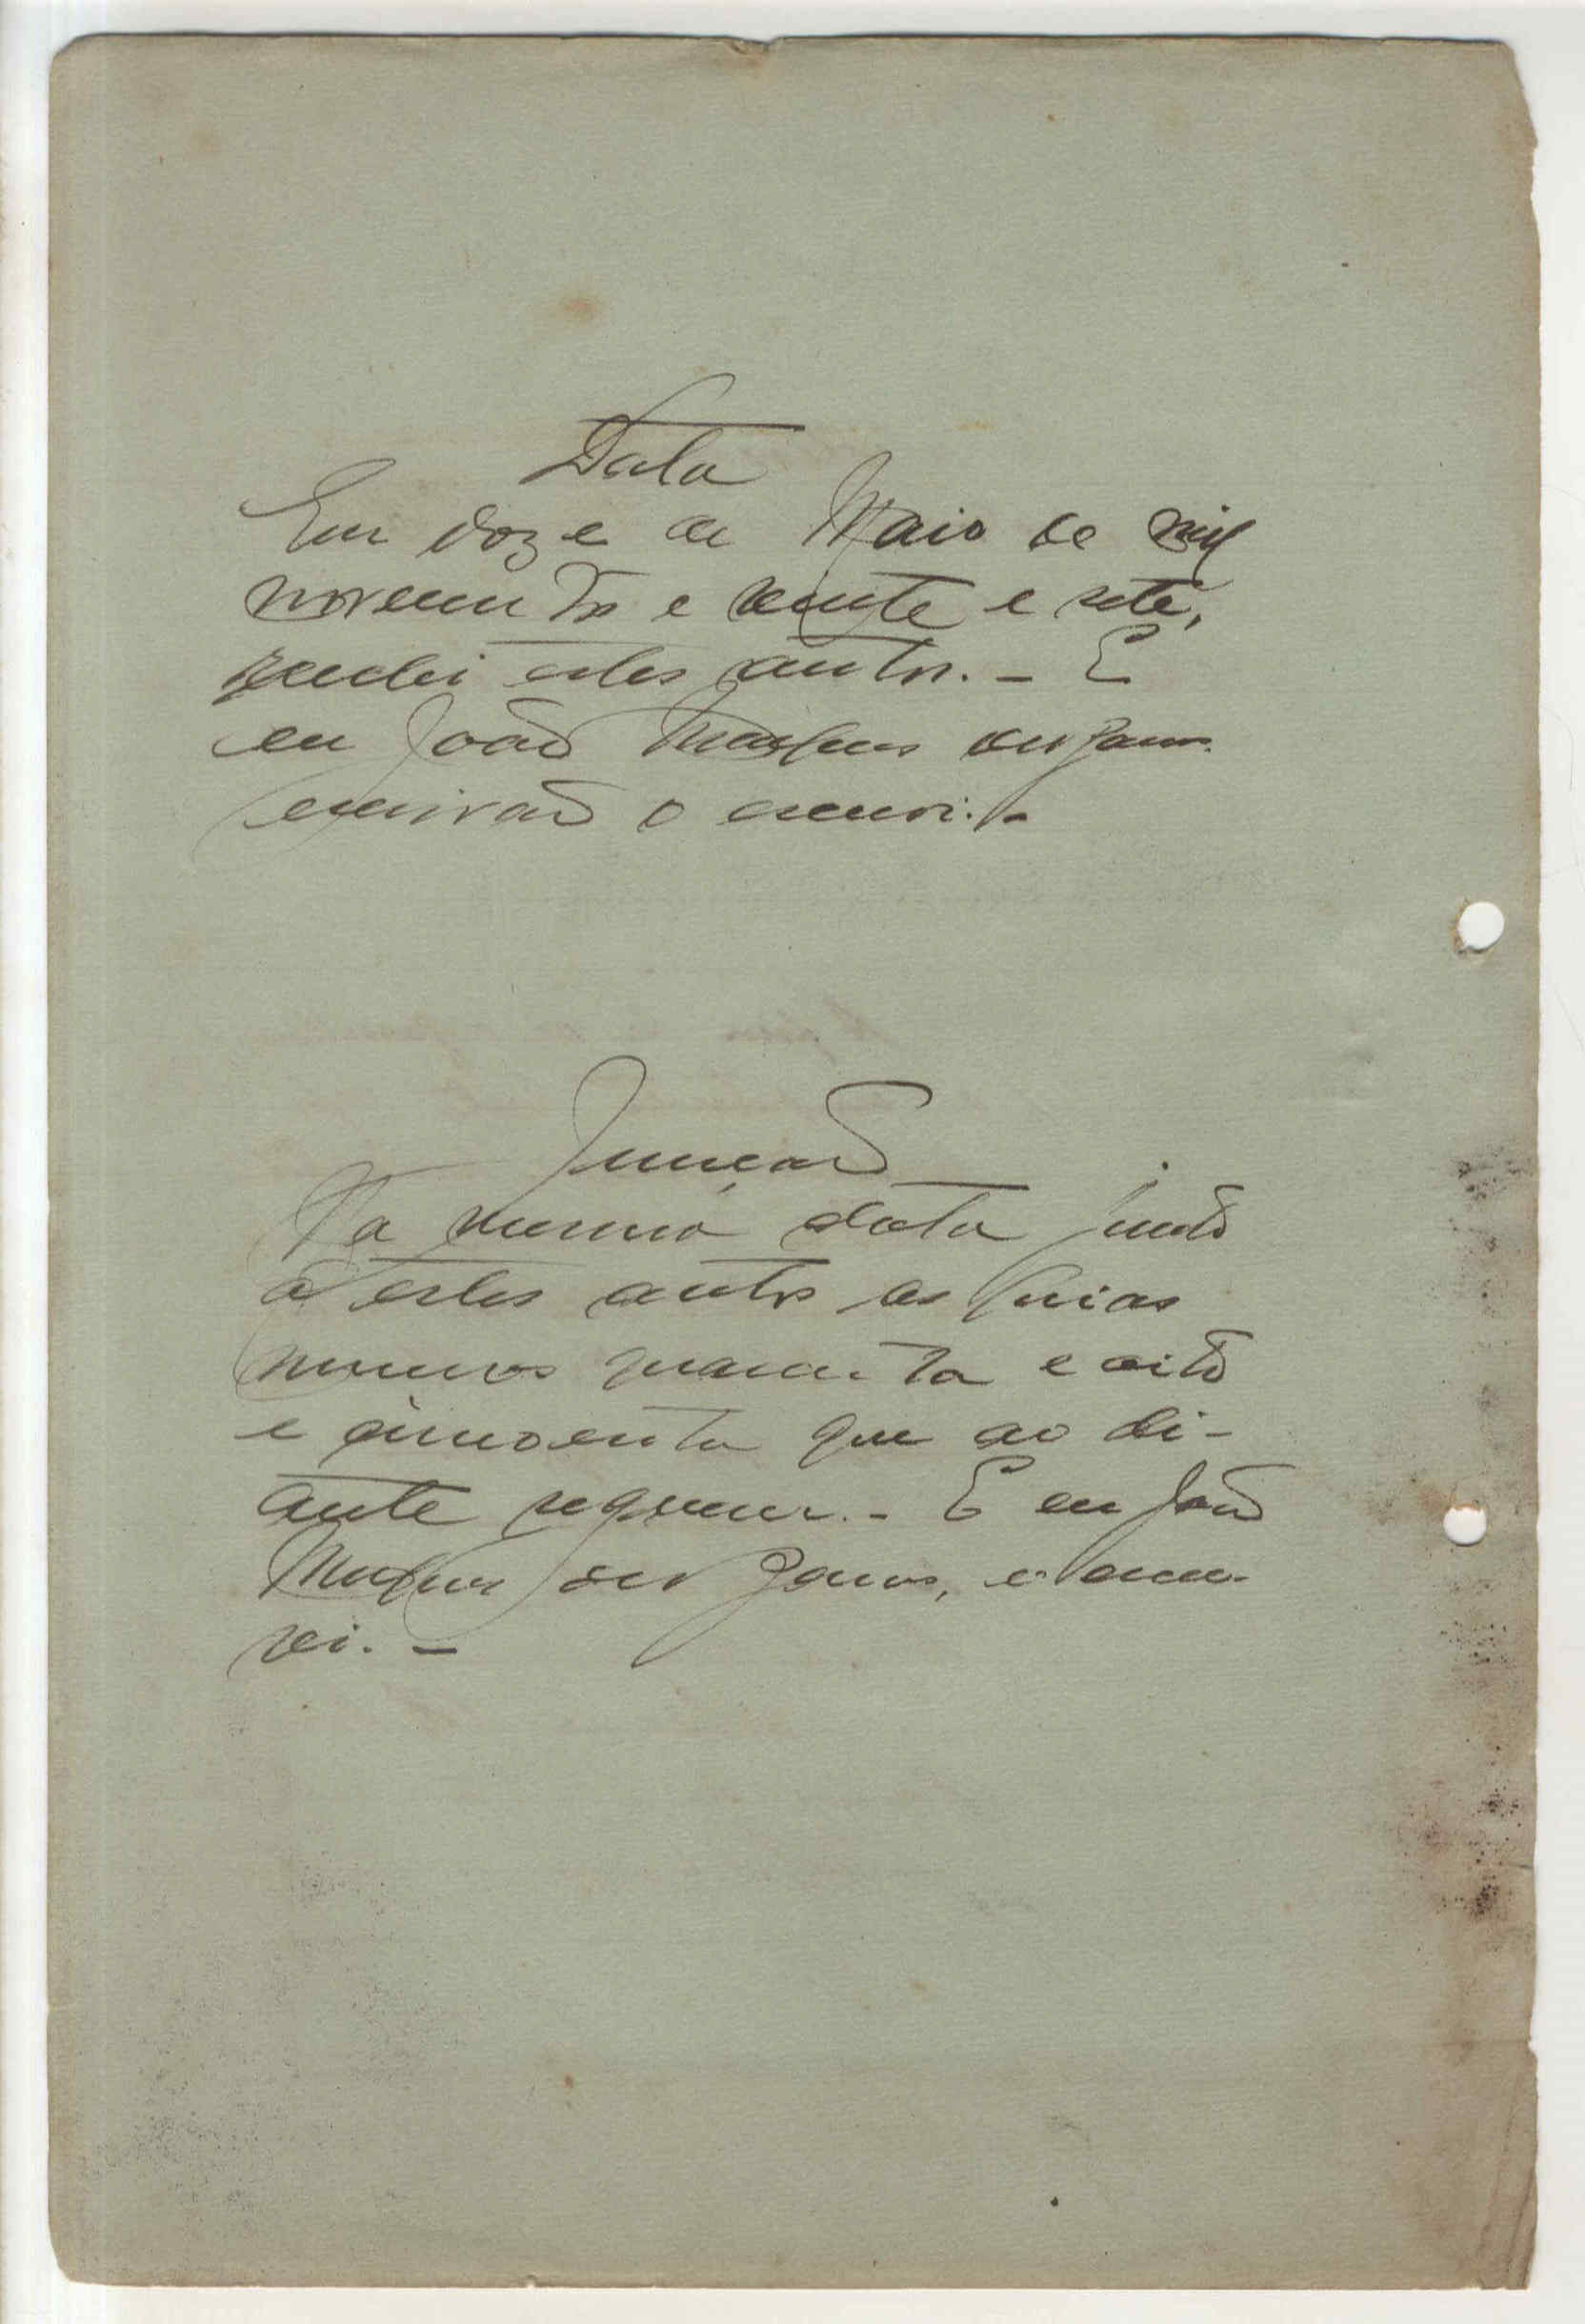 Data
Em doze de Maio de mil
novecentos e vinte e sete,
recebi estes autos. - E
eu João Marques
escrivão o escrevi. -
Junção
Na mesma data junto
a estes autos as guias
numeros quarenta e oito
e cincoenta que ao di-
ante seguem. - E eu João
Marques o escre-
vi. -